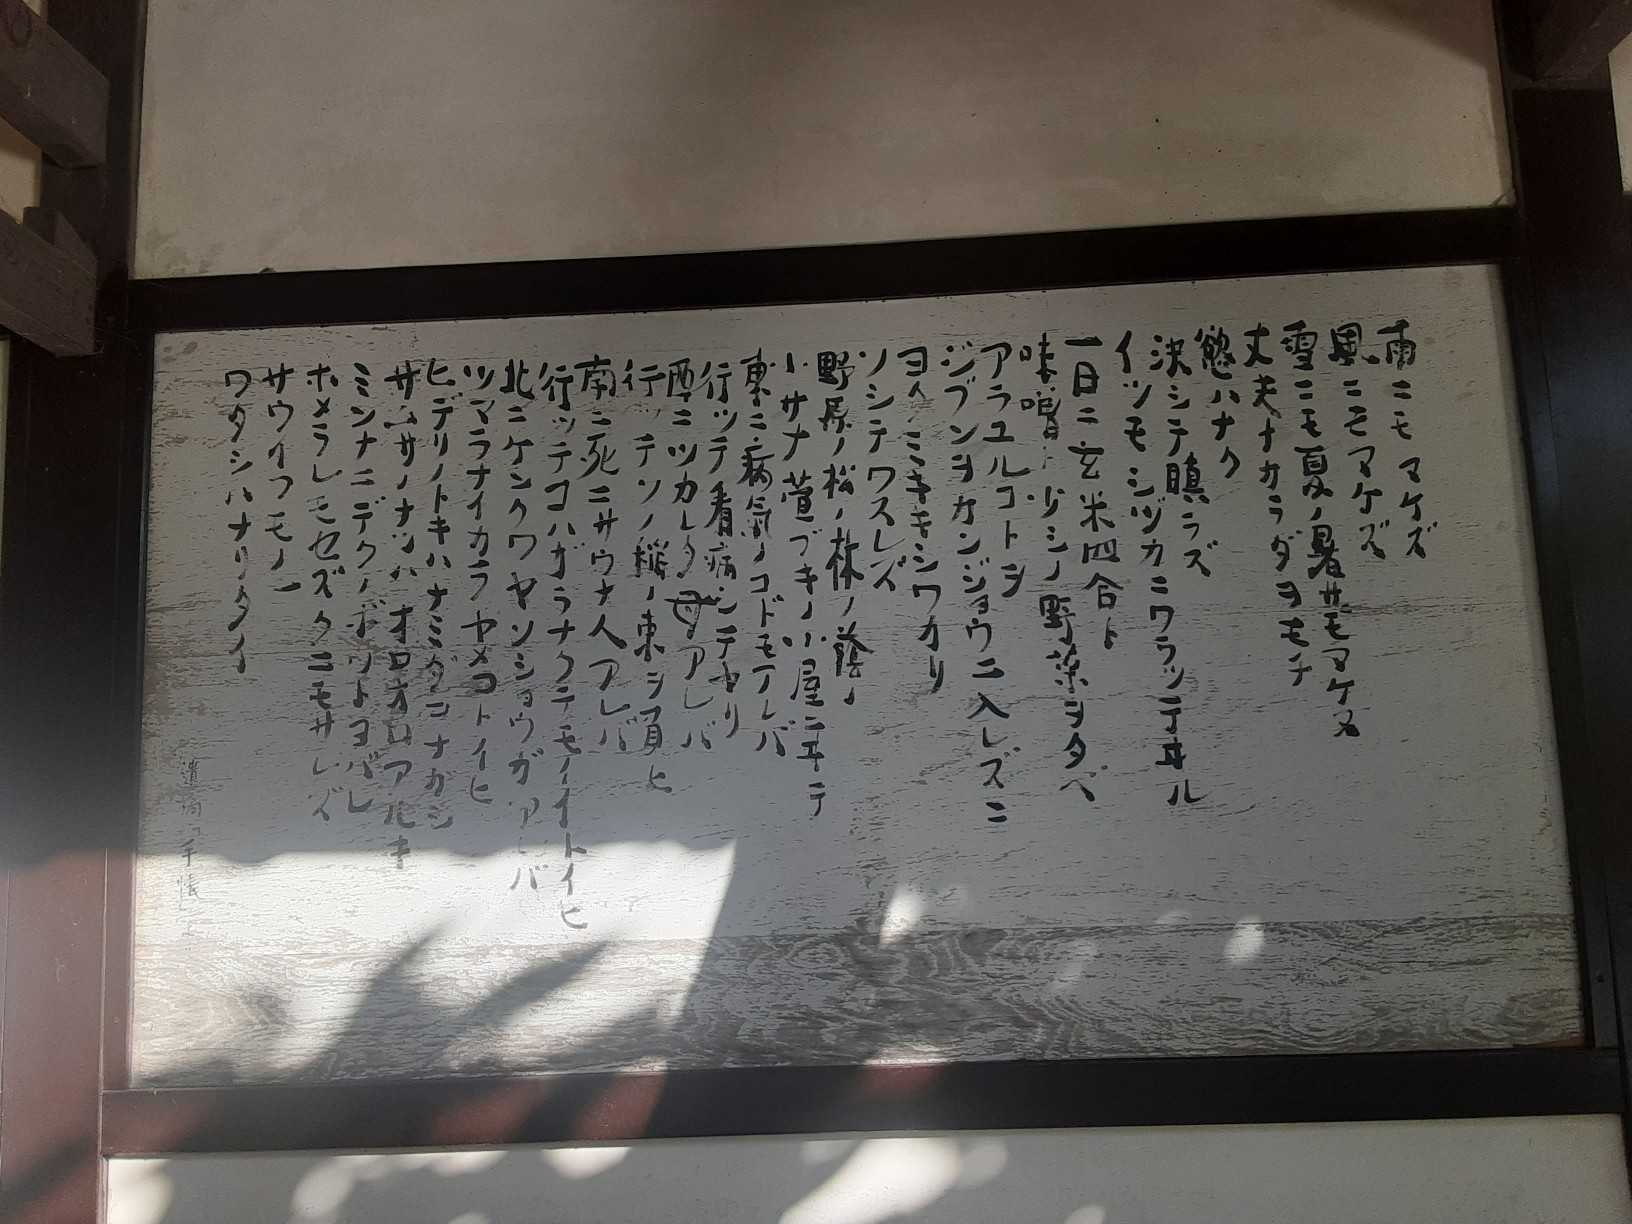 雨ニモマケズ
風ニモマケズ
雪ニモ夏ノ暑サモマケヌ
丈夫ナカラダヲモチ
慾ハナク
決シテ瞋ラズ
イツモシヅカニワラッテヰル
一日ニ玄米四合ト
味噌ト少シノ野菜ヲタベ
アラユルコトヲ
ジブンヲカンジョウニ入レズニ
ヨクミキキシワカリ
ソシテワスレズ
野原ノ松ノ林ノ蔭ノ
小サナ萱ブキノ小屋ニヰテ
東ニ病気ノコドモアレバ
行ッテ看病シテヤリ
西ニツカレタ母アレバ
行ッテソノ稲ノ束ヲ負ヒ
南ニ死ニサウナ人アレバ
行ッテコハガラナクテモイイトイヒ
北ニケンクヮヤソショウガアレバ
ツマラナイカラヤメロトイヒ
ヒデリノトキハナミダヲナガシ
サムサノナツハオロオロアルキ
ミンナニデクノボウトヨバレ
ホメラレモセズクニモサレズ
サウイフモノニ
ワタシハナリタイ
遺稿 手帳